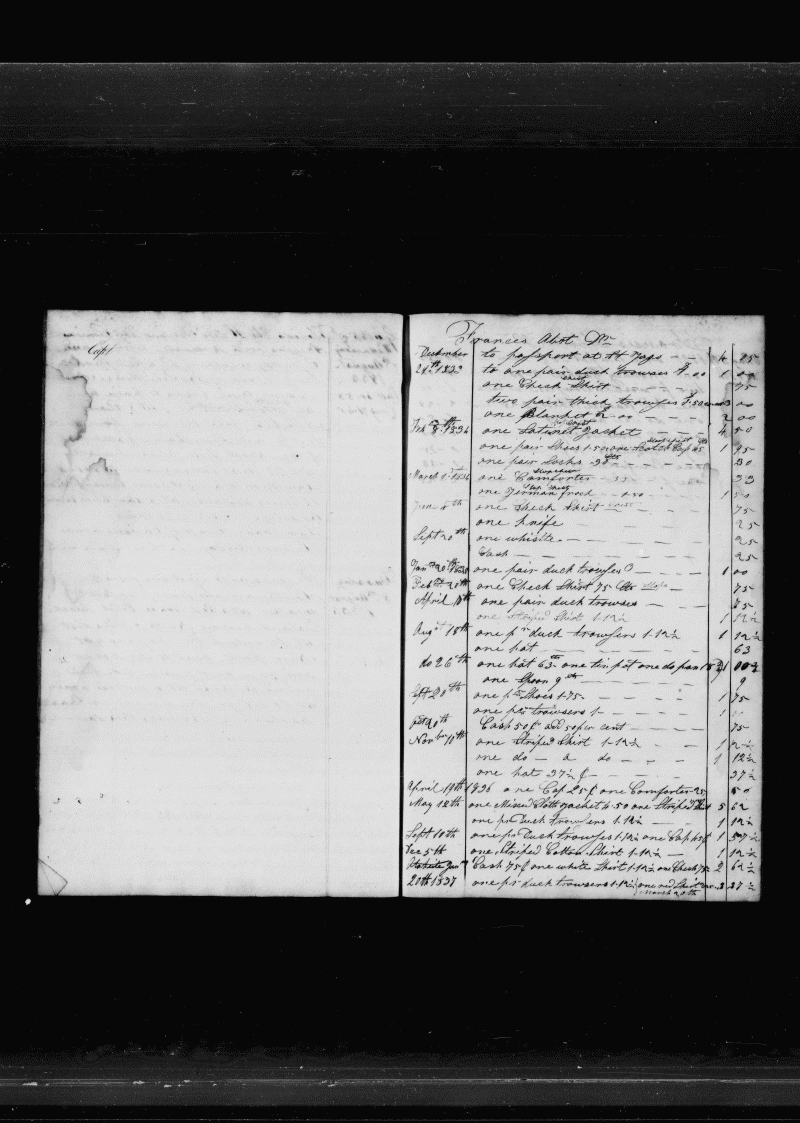 Capt
Frances Abot Dr
December to passport at 4 75
24th 1833 to one pair duck trowses 1 00
one Check Shirt 75
two pair thick trowses 1.50 3 00
one Blanket 2 00 2 00
Feb 8th 1834 one Satinet Jacket 4 50
one pair Shoes 1.50 one Cap 45 1 95
one pair Socks 30 cts 30
March 1834 one Comforter 33 33
one German frock 1 50 1 50
June 4th one Check Shirt 75
one Knife 25
Sept 20th one whistle 25
Cash 25
Jany 20th one pair duck trowses 1 00
Feby 28th one Check Shirt 75 Cts 75
April 10th one pair duck trowses 75
one Striped Shirt 1.12½ 1 12½
Augt 18th one pr duck trowsers 1.12½ 1 12½
one hat 63
do 26th one hat 63 one tin pot one do pan 1 00½
one Spoon 9 cts 9
Sept 28th one pr Shoes 1.75 1 75
one pr trowsers 1 1
Oct 20th Cash 50¢ add 50 per cent 75
Novbr 10th one Striped Shirt 1.12½ 1 12½
one do a do 1 12½
one hat 37½¢ 37½
April 19th 1836 one Cap 25¢ one Comforter 25 50
May 12th one Mixed Cloth Jacket 4.50 one Striped Shirt 5 62
one pr Duck trowsers 1.12½ 1 12½
Sept 10th one pr Duck trowses 1.12½ one Cap 45¢ 1 57½
Dec 5th one Striped Cotton Shirt 1.12½ 1 12½
Otaheite Jany Cash 75¢ one white Shirt 1.12½ one Check 75 2 62½
20th 1837 one pr duck trowsers 1.12½ one red Shirt 3 37½
March 20th